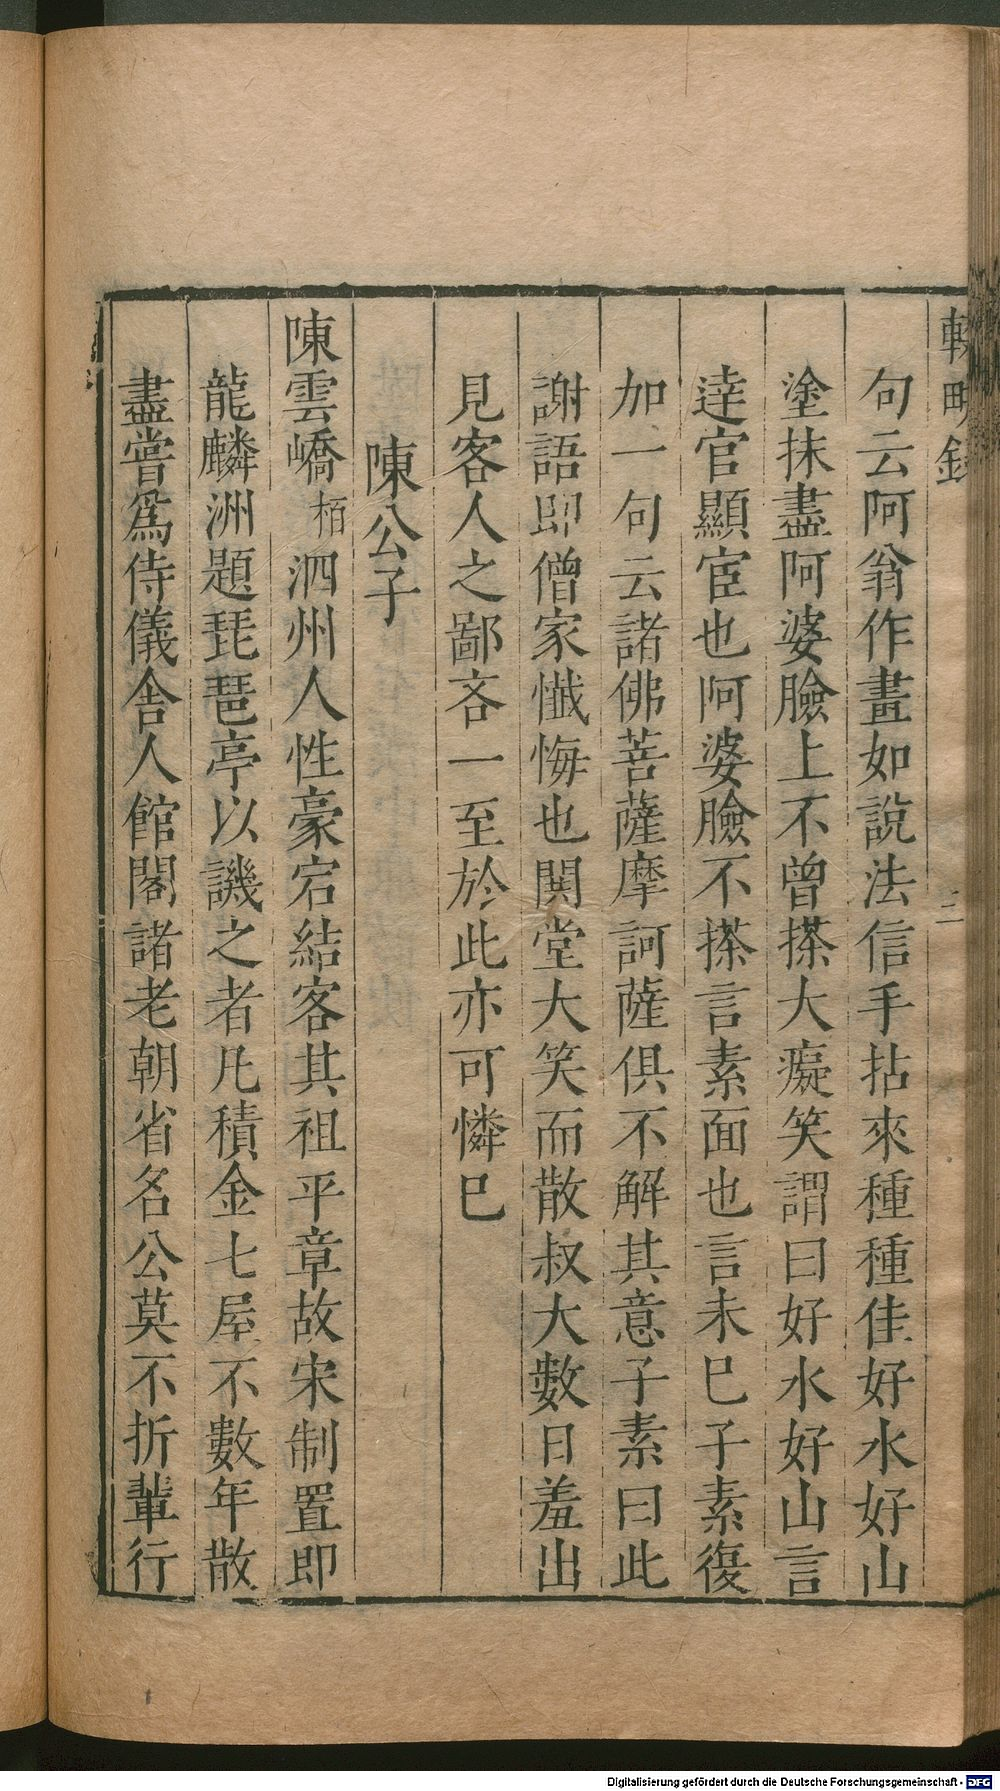 輟畊錄
二
句云阿翁作畫如說法信手拈來種種佳好水好山
塗抹盡阿婆臉上不曾搽大癡笑謂曰好水好山言
達官顯宦也阿婆臉不搽言素面也言未巳子素復
加一句云諸佛菩薩摩訶薩俱不解其意子素曰此
謝語即僧家懺悔也閧堂大笑而散叔大數日羞出
見客人之鄙吝一至於此亦可憐巳
陳公子
陳雲嶠栢泗州人性豪宕結客其祖平章故宋制置即
龍麟洲題琵琶亭以譏之者凡積金七屋不數年散
盡嘗爲侍儀舍人館閣諸老朝省名公莫不折輩行
Digitalisierung gefördert durch die Deutsche Forschungsgemeinschaft - DFG